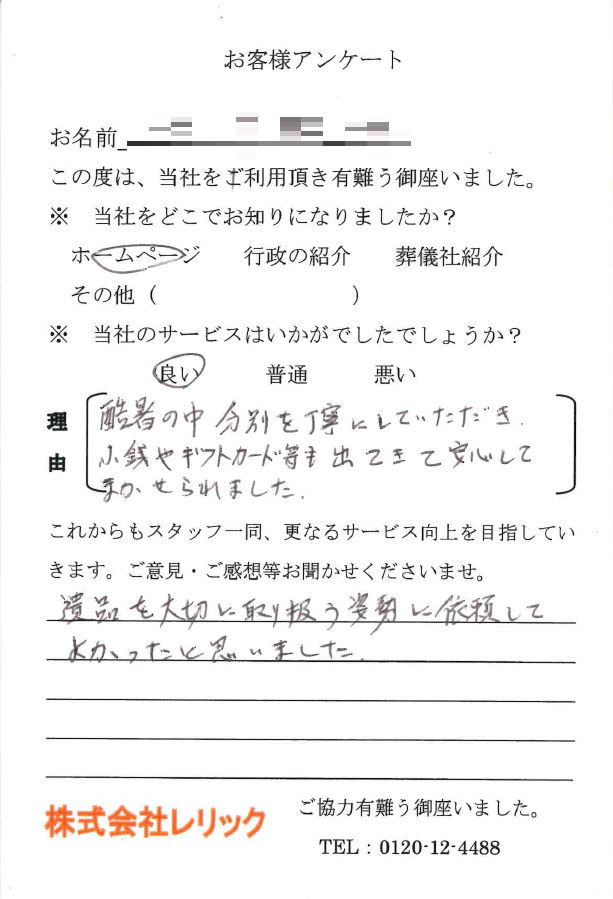 お客様アンケート
お名前
この度は、当社をご利用頂き有難う御座いました。
※ 当社をどこでお知りになりましたか？
ホームページ 行政の紹介 葬儀社紹介
その他（ ）
※ 当社のサービスはいかがでしたでしょうか？
良い 普通 悪い
理由
酷暑の中 分別を丁寧にしていただき、
小銭やギフトカード等も出てきて安心して
まかせられました。
これからもスタッフ一同、更なるサービス向上を目指してい
きます。ご意見・ご感想等お聞かせくださいませ。
遺品を大切に取り扱う姿勢に依頼して
よかったと思いました。
株式会社レリック
ご協力有難う御座いました。
TEL：0120-12-4488